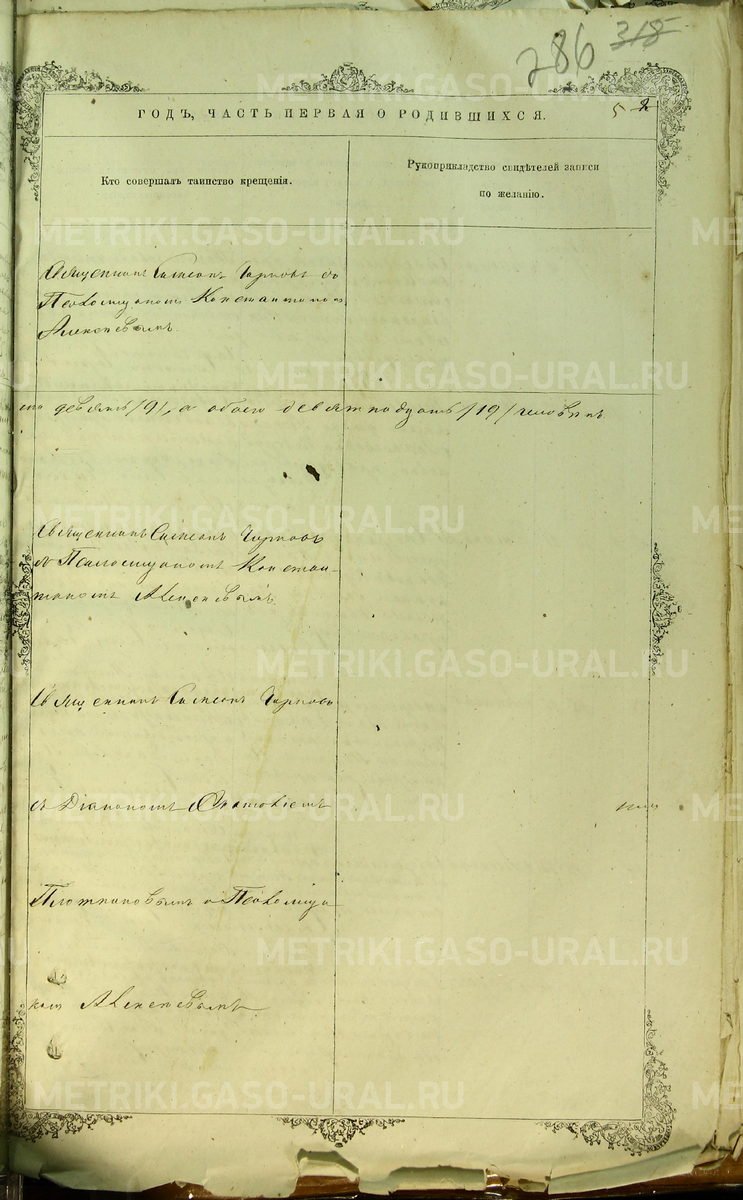 286 318
ГОДЪ, ЧАСТЬ ПЕРВАЯ О РОДИВШИХСЯ.
5 2
Кто совершалъ таинство крещенія.
Рукоприкладство свидѣтелей записи
по желанію.
Священникъ Симеонъ Чирковъ съ
Псаломщикомъ Константиномъ
Алексѣевымъ.
девять /9/, а обоего девятнадцать /19/ человѣкъ
Священникъ Симеонъ Чирковъ
съ Псаломщикомъ Констан-
тиномъ Алексѣевымъ.
Священникъ Симеонъ Чирковъ
съ Діакономъ
Плотниковымъ и Псаломщи
комъ Алексѣевымъ
METRIKI.GASO-URAL.RU